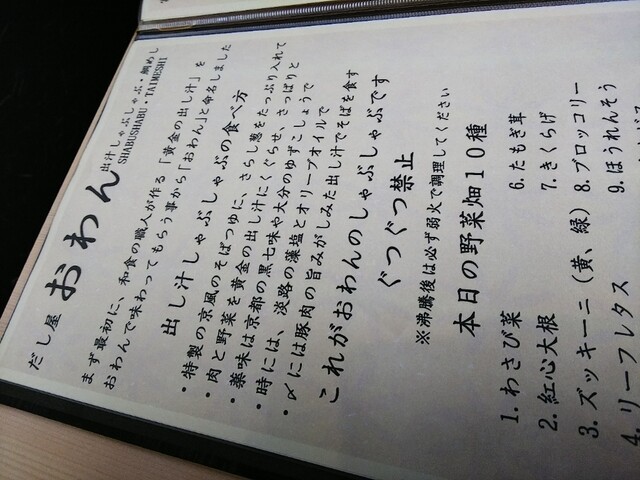 だし屋 おわん 出汁しゃぶしゃぶ・鯛めし
SHABUSHABU・TAIMESHI
まず最初に、和食の職人が作る「黄金の出し汁」を
おわんで味わってもらう事から「おわん」と命名しました
出し汁しゃぶしゃぶの食べ方
・特製の京風のそばつゆに、さらし葱をたっぷり入れて
・肉と野菜を黄金の出し汁にくぐらせ、さっぱりと
・薬味は京都の黒七味や大分のゆずこしょうで
・時には、淡路の藻塩とオリーブオイルで
・〆には豚肉の旨みがしみた出し汁でそばを食す
これがおわんのしゃぶしゃぶです
ぐつぐつ禁止
※沸騰後は必ず弱火で調理してください
本日の野菜畑10種
1. わさび菜
2. 紅心大根
3. ズッキーニ(黄、緑)
4. リーフレタス
6. たもぎ茸
7. きくらげ
8. ブロッコリー
9. ほうれんそう